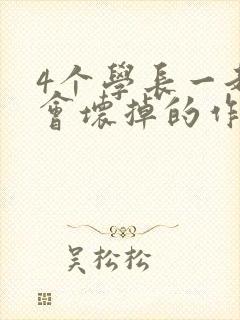 4个學長一
會壞掉的作
吴松松